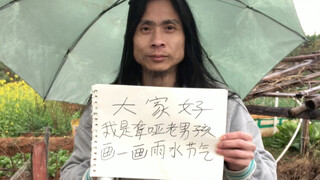 大家好
我是聋哑老男孩
画一画雨水节气